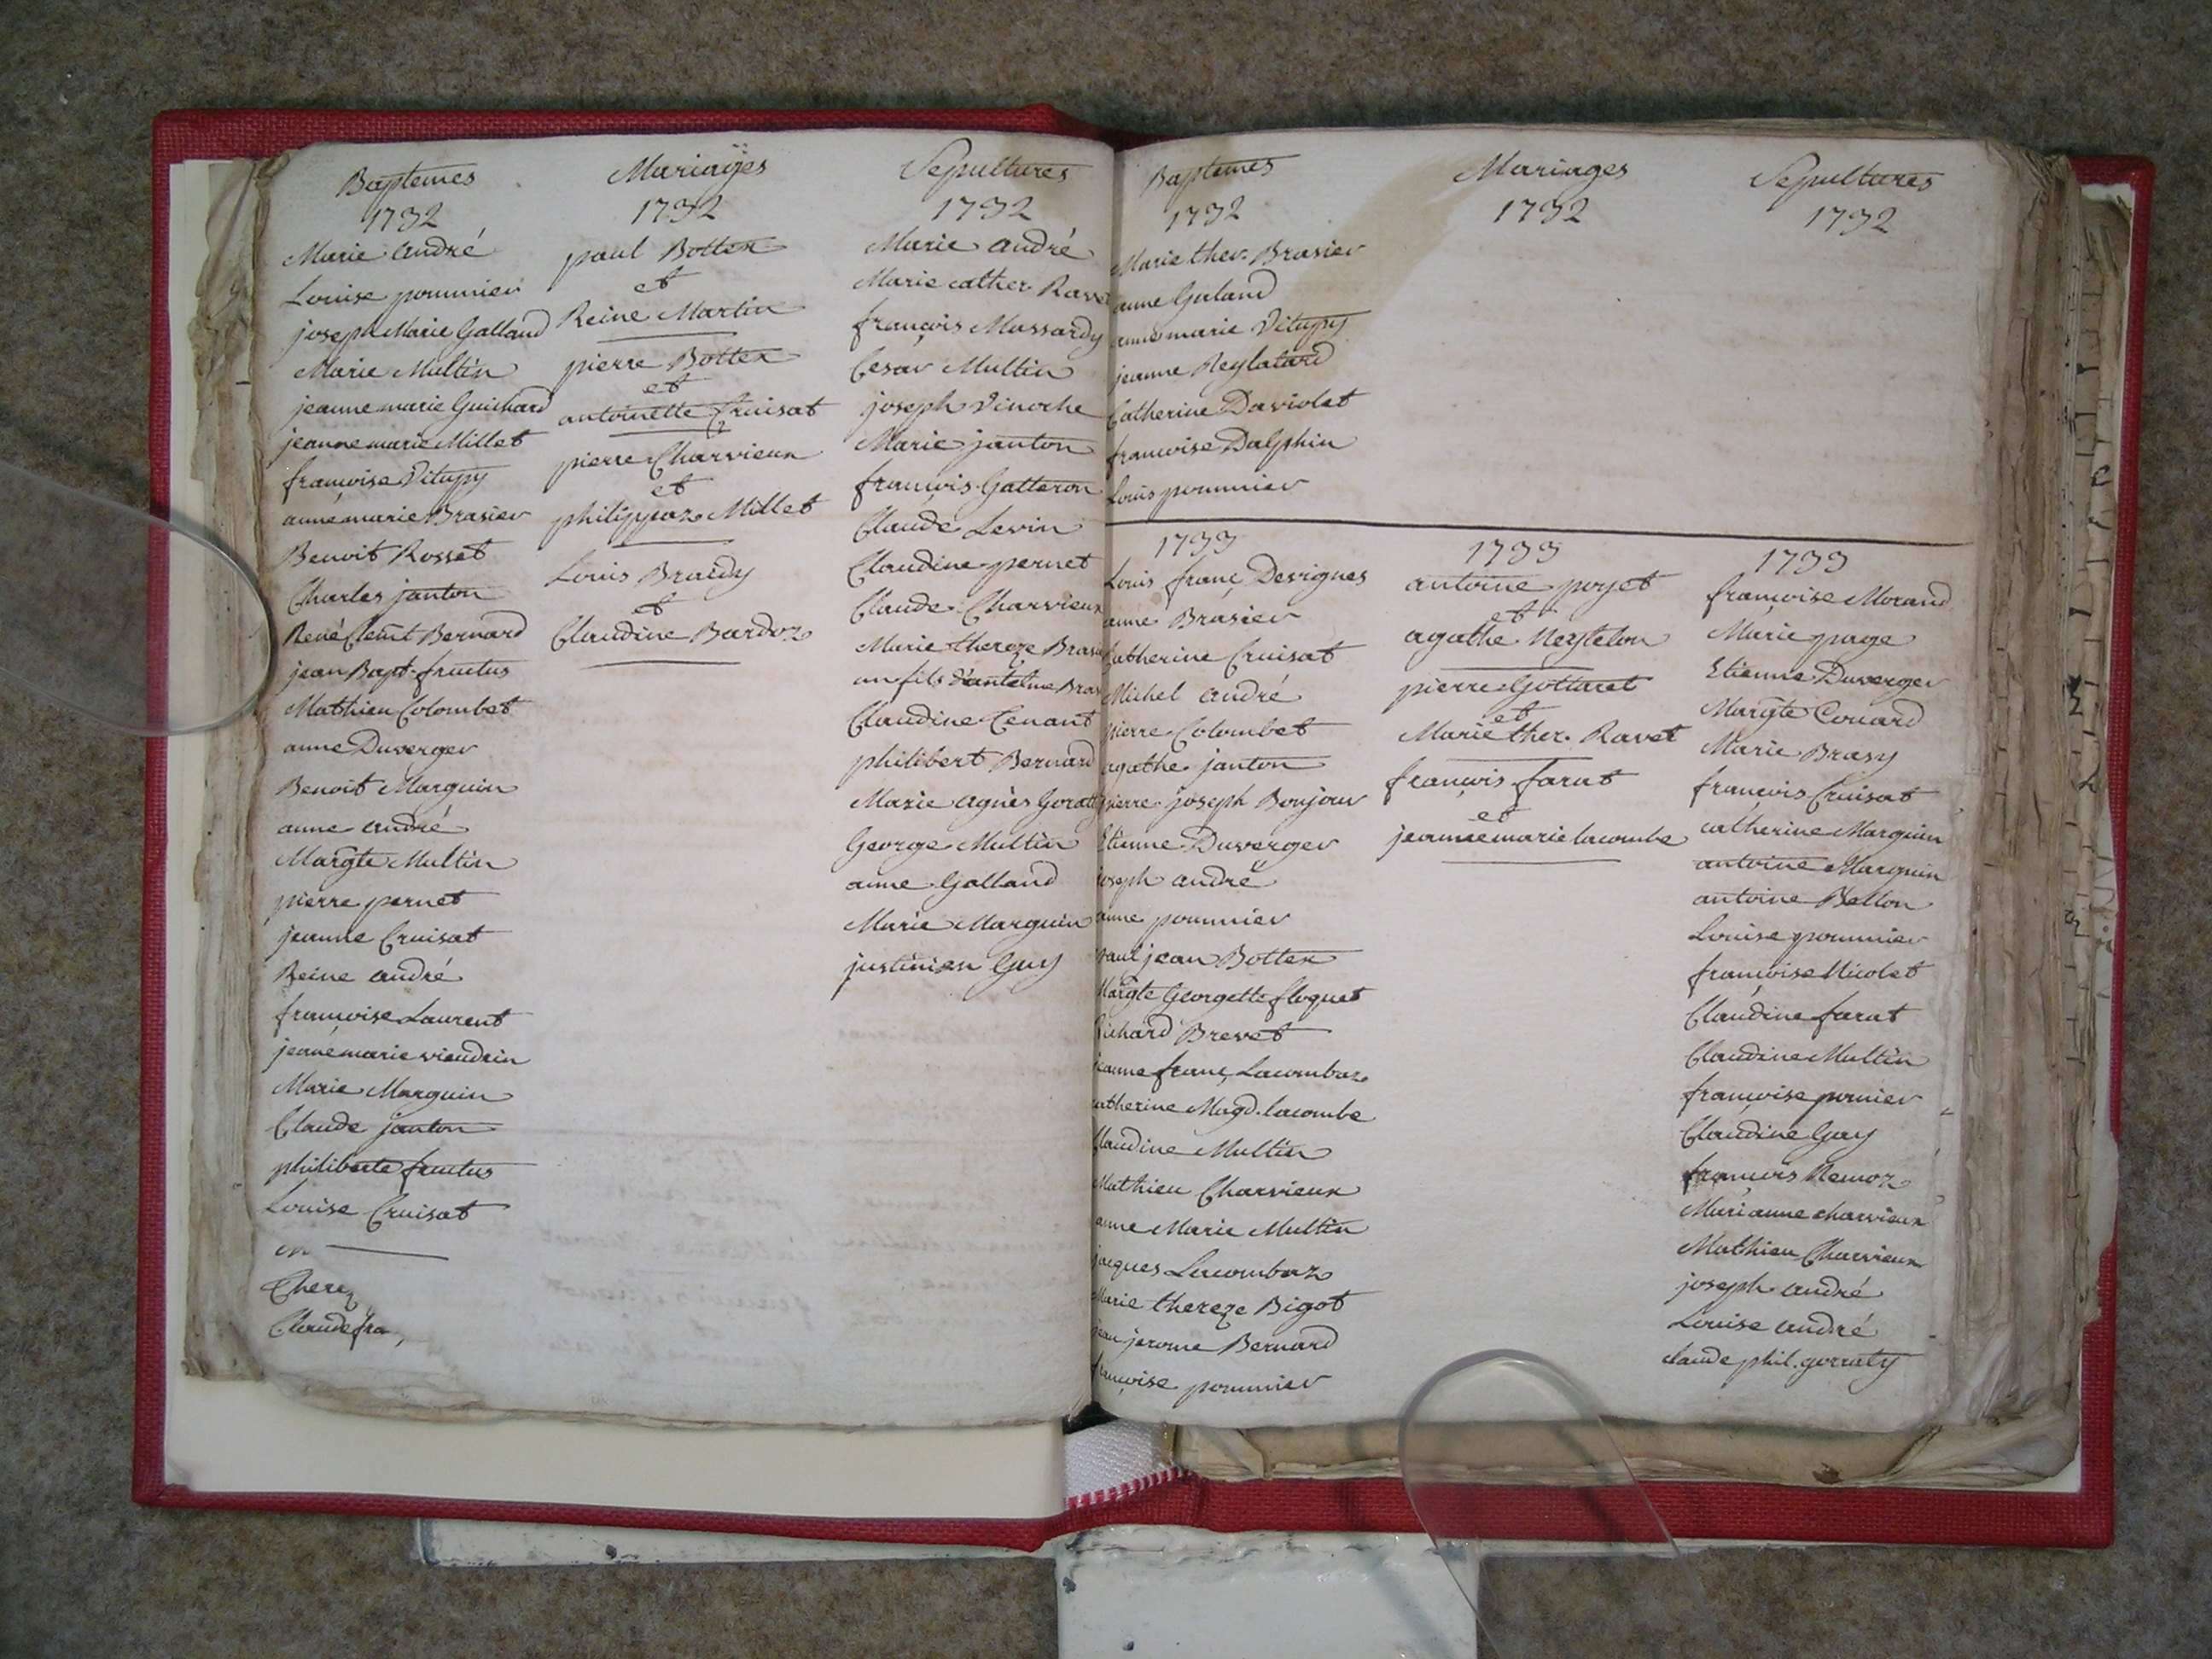 Baptemes
1732
Marie andré
Louise pommier
joseph Marie Galland
Marie Multin
jeanne marie Guichard
jeanne marie Millet
françoise Vitupy
anne marie Brasier
Benoit Rosset
Charles janton
René Clemt Bernard
jean Bapt. fructus
Mathieu Colombet
anne Duverger
Benoit Marguin
anne andré
Margte Multin
pierre pernet
jeanne Cruisat
Reine andré
françoise Laurent
jeane marie vieudrin
Marie Marguin
Claude janton
philiberte fructus
Louise Cruisat
on
Therez
Claude fra
Mariages
1732
paul Bottex
et
Reine Martin
pierre Bottex
et
antoinette Cruisat
pierre Charvieux
et
philippaz Millet
Louis Braidy
et
Claudine Bardoz
Sepultures
1732
Marie andré
Marie cather. Rave
françois Mussardy
Cesar Multin
joseph Vinoche
Marie janton
françois Galleron
Claude Levin
Claudine pernet
Claude Charvieux
Marie thereze Bras
un fils d'antelme Bras
Claudine Tenant
philibert Bernard
Marie agnès
George Multin
anne Galland
Marie Marguin
justinien Guy
Baptemes
1732
Marie ther. Brasier
anne Galand
anne marie Vitupy
jeanne Reylatard
Catherine Daviolet
françoise Dalphin
Louis pommier
1733
Louis franç Desvignes
anne Brasier
Catherine Cruisat
Michel andré
pierre Colombet
agathe janton
pierre joseph Bonjour
Etienne Duverger
joseph andré
anne pommier
paul jean Bottex
Margte Georgette floquet
Richard Brevet
jeanne franç Lacombaz
catherine Magd. lacombe
Claudine Multin
Mathieu Charvieux
anne Marie Multin
jacques Lacombaz
Marie thereze Bigot
jean jerome Bernard
françoise pommier
Mariages
1732
1733
antoine poyet
et
agathe Neytelon
pierre Gottaret
et
Marie ther. Ravet
françois farat
et
jeanne marie lacombe
Sepultures
1732
1733
françoise Morand
Marie page
Etienne Duverger
Margte Couard
Marie Brasy
françois Cruisat
catherine Marguin
antoine Marguin
antoine Bellon
Louise pommier
françoise Nicolet
Claudine farat
Claudine Multin
françoise
Claudine Guy
françois Remoz
Marianne charvieux
Mathieu Charvieux
joseph andré
Louise andré
claude phil. gorraty